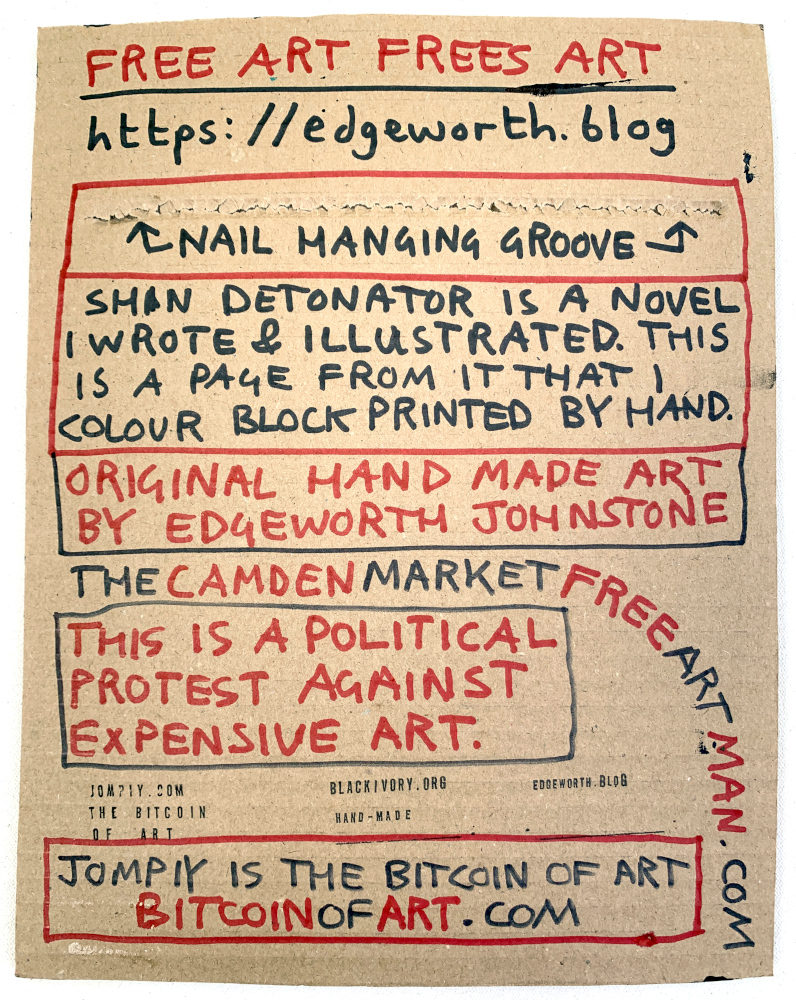 FREE ART FREES ART
https://edgeworth.blog
NAIL HANGING GROOVE
SHAN DETONATOR IS A NOVEL
I WROTE & ILLUSTRATED. THIS
IS A PAGE FROM IT THAT I
COLOUR BLOCK PRINTED BY HAND.
ORIGINAL HAND MADE ART
BY EDGEWORTH JOHNSTONE
THECAMDENMARKETFREEARTMAN.COM
THIS IS A POLITICAL
PROTEST AGAINST
EXPENSIVE ART.
JOMPIY.COM
THE BITCOIN
OF ART
BLACKIVORY.ORG
HAND-MADE
EDGEWORTH.BLOG
JOMPIY IS THE BITCOIN OF ART
BITCOINOFART.COM